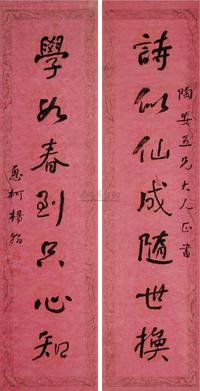 陶安五兄大人正書
詩似仙成隨世換
學如春到只心知
惠柯楊